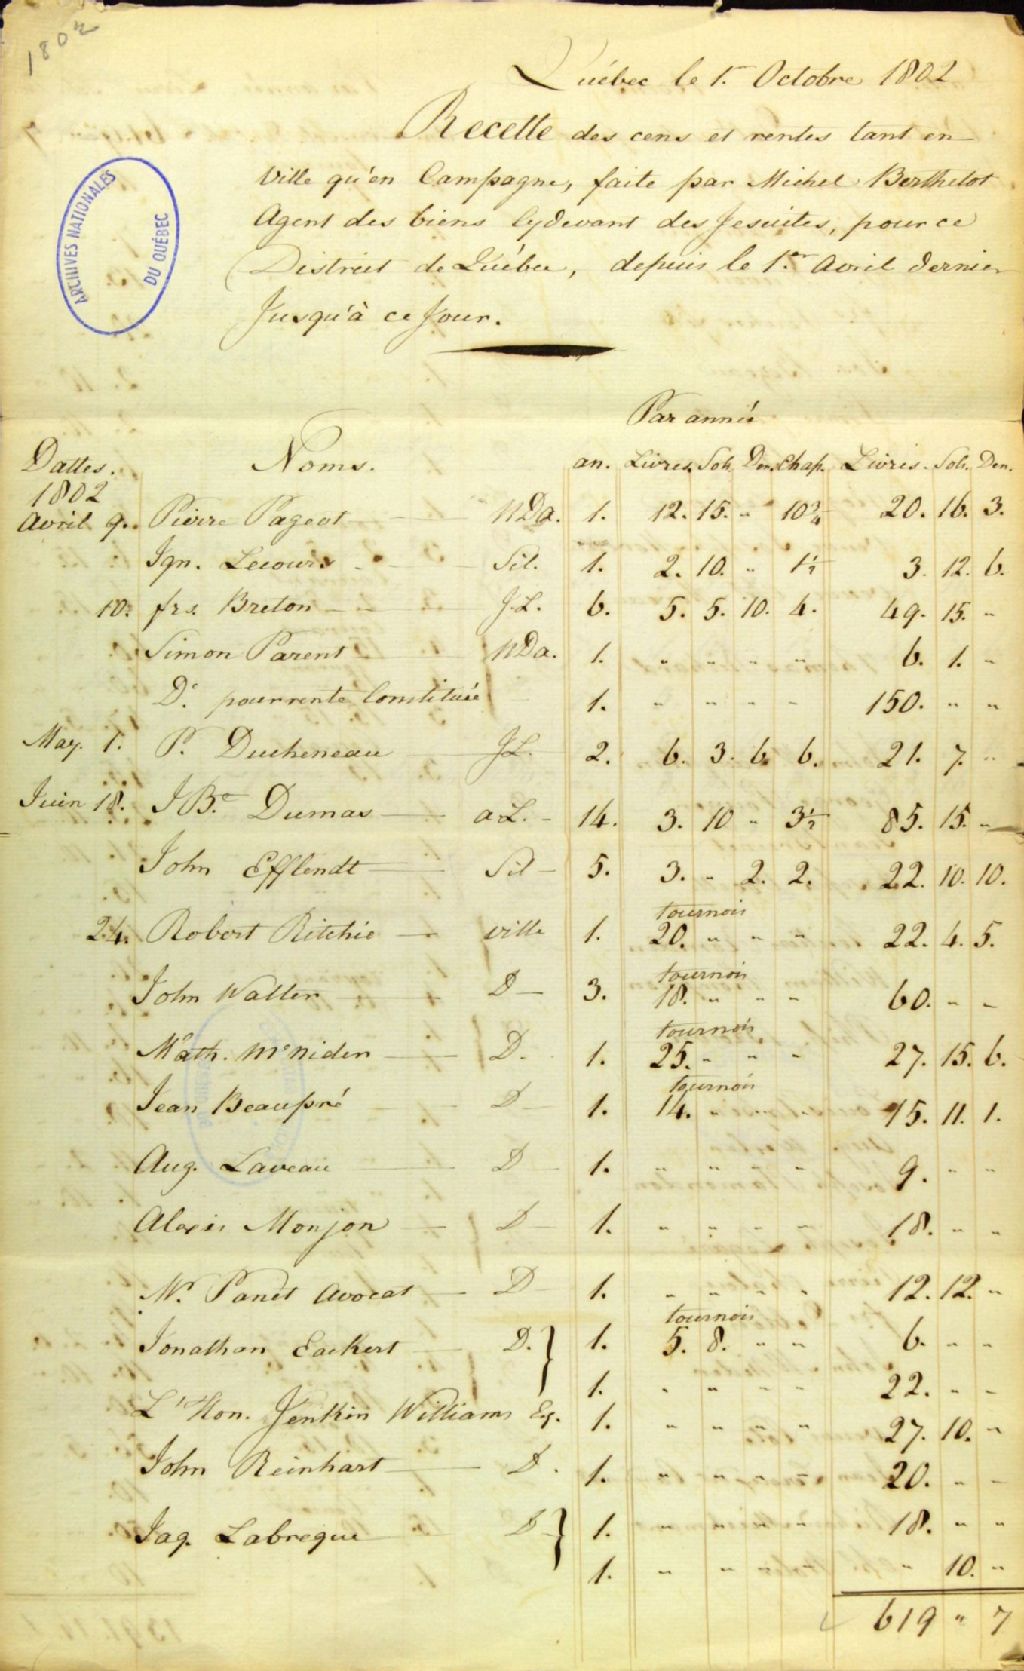 1802
Québec le 1.r Octobre 1802
Recette des cens et rentes tant en
Ville qu'en Campagne, faite par Michel Berthelot
Agent des biens Cydevant des Jesuites, pour ce
District de Québec, depuis le 1.er Avril dernier
Jusqu'à ce Jour.
ARCHIVES NATIONALES
DU QUÉBEC
Par année
Dattes. Noms. an. Livres. Sols. Den. Chap. Livres. Sols. Den.
1802
Avril 9. Pierre Pageot NDa. 1. 12. 15. " 10 3/4 20. 16. 3.
Ign. Lecours Sil. 1. 2. 10. " 1 1/2 3. 12. 6.
10. frs. Breton J.L. 6. 5. 5. 10. 4. 49. 15. "
Simon Parent NDa. 1. " " " " 6. 1. "
Do. pour rente Constituée 1. " " " " 150. " "
May. 1. P. Ducheneau J.L. 2. 6. 3. 6. 6. 21. 7. "
Juin 18. J Bte. Dumas a L. 14. 3. 10 " 3 1/2 85. 15. "
John Efflendt Sil 5. 3. " 2. 2. 22. 10. 10.
tournois
24. Robert Ritchie ville 1. 20. " " " 22. 4. 5.
tournois
John Walter D 3. 18. " " " 60. " "
tournois
Math. McNider D. 1. 25. " " " 27. 15. 6.
tournois
Jean Beaupré D 1. 14. " " " 15. 11. 1.
Aug. Laveau D 1. " " " " 9. " "
Alexis Monjon D 1. " " " " 18. " "
Mr. Panet Avocat D 1. " " " " 12. 12. "
tournois
Jonathan Eackert D. } 1. 5. 8. " " 6. " "
1. " " " " 22. " "
L'Hon. Jenkin Williams Eq. 1. " " " " 27. 10. "
John Reinhart D. 1. " " " " 20. " "
Jaq. Labreque D } 1. " " " " 18. " "
1. " " " " " 10. "
619 " 7